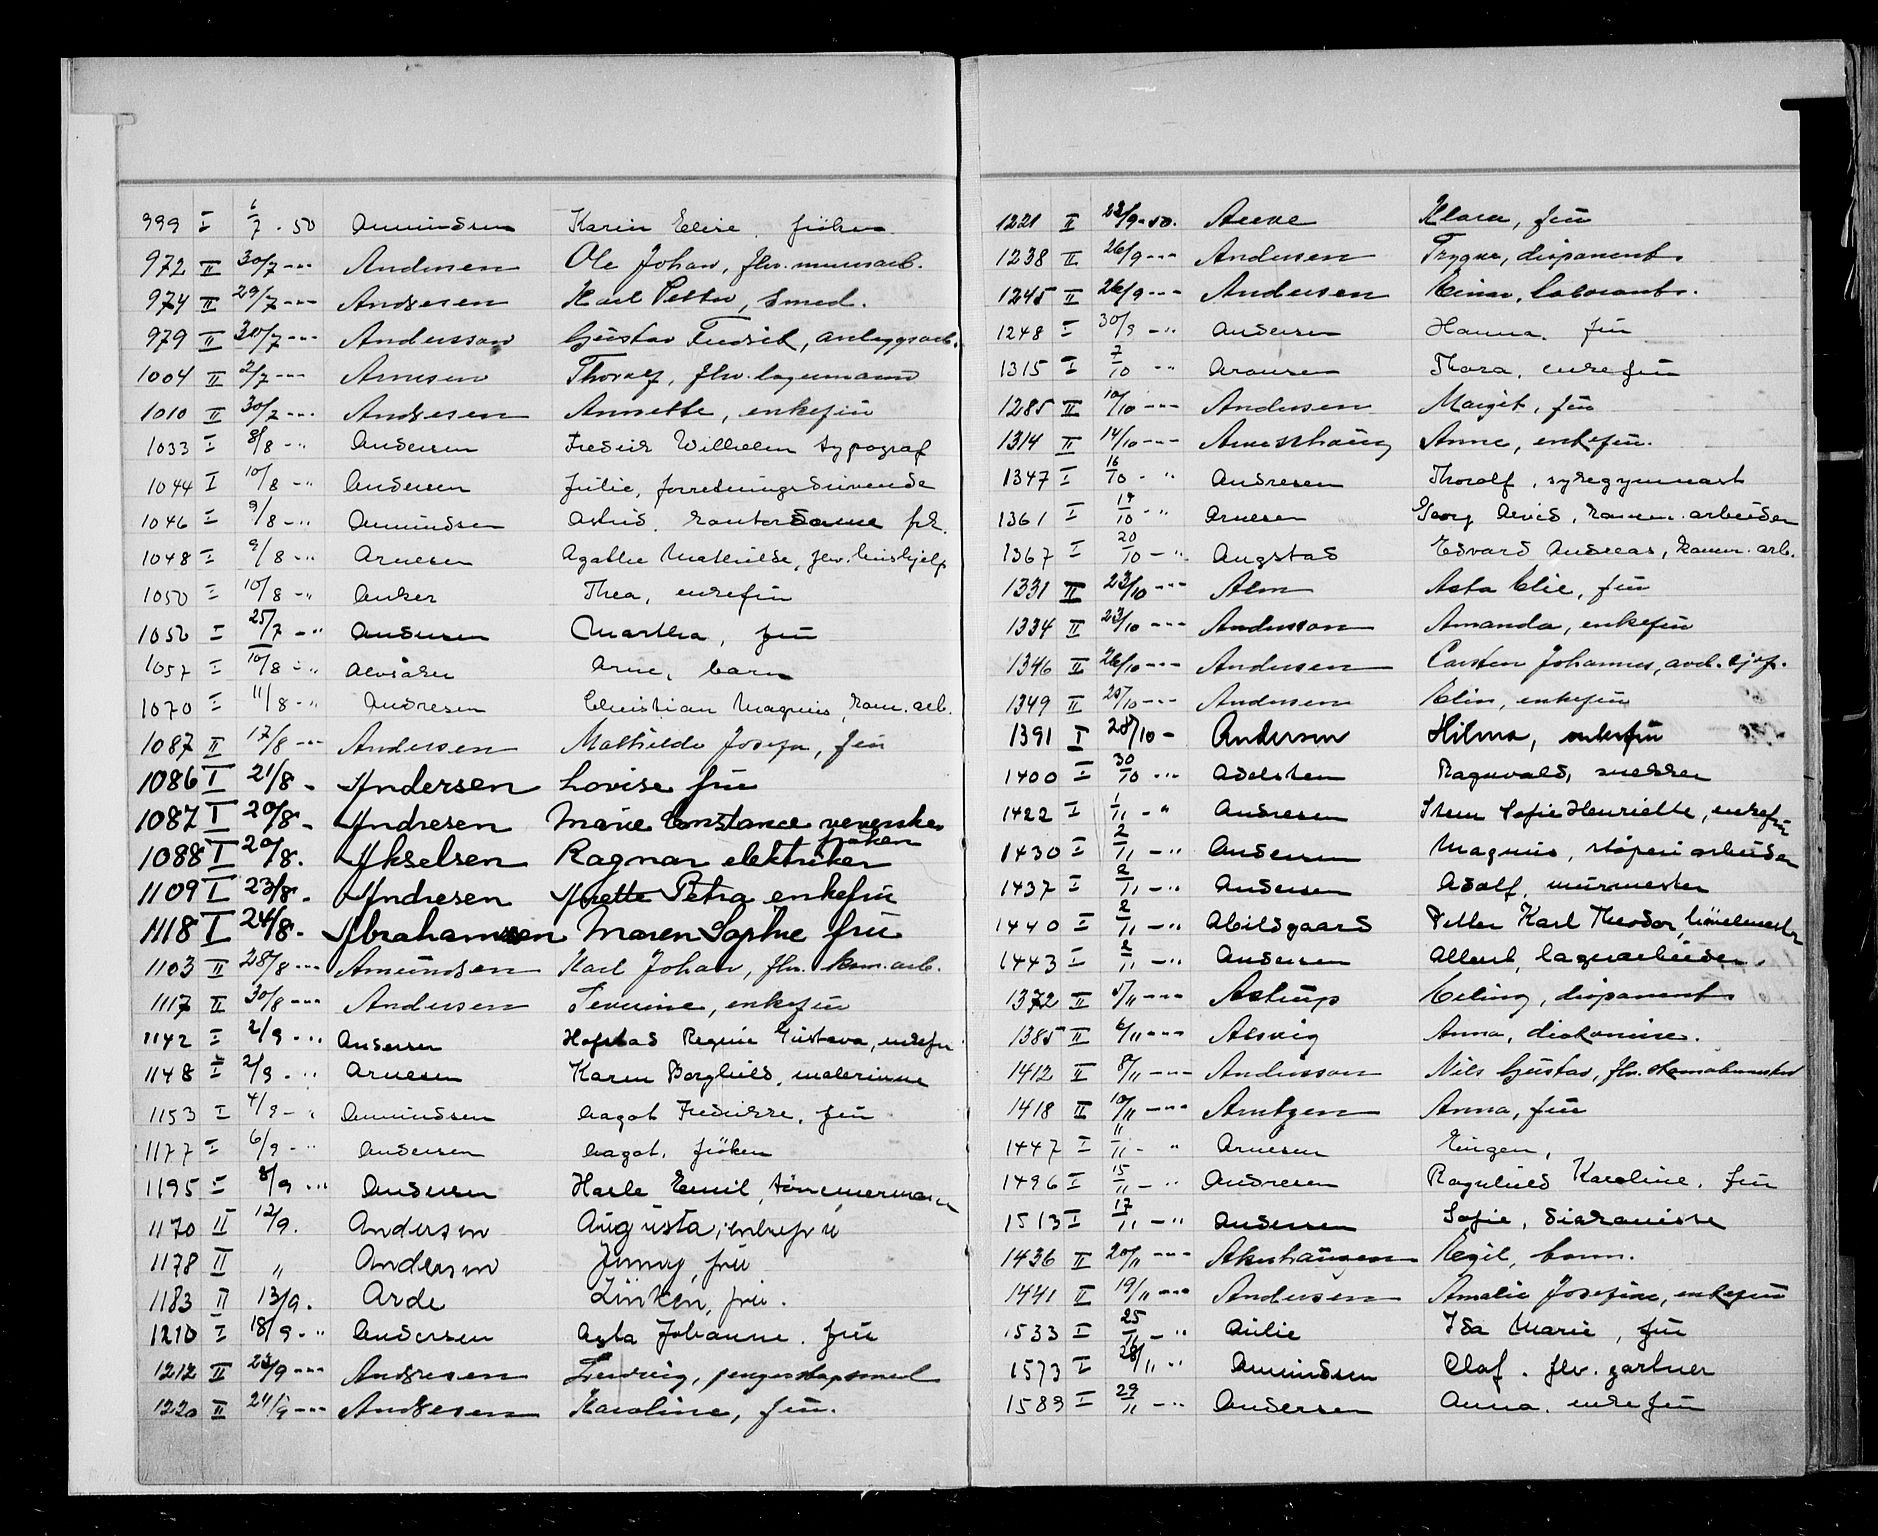 999 I 6/7 - 50 Amundsen Karin Elise, frøken
972 II 30/7 -"- Andersen Ole Johan, fhv. murarb.
974 II 29/7 -"- Andresen Karl Petter, smed.
979 II 30/7 -"- Andersson Gustav Fredrik, anleggsarb.
1004 II 2/7 -"- Arnesen Thoralf, fhv. lagermann
1010 II 30/7 -"- Andresen Annette, enkefru
1033 I 8/8 -" Andersen Fredrik Wilhelm typograf
1044 I 10/8 -" Andersen Julie, forretningsdrivende
1046 I 9/8 -" Amundsen Astrid, kontordame frk.
1048 I 9/8 -" Arnesen Agathe Mathilde, fhv. hushjelp
1050 I 10/8 -" Anker Thea, enkefru
1052 I 25/7 -" Andersen Martha, fru
1057 I 10/8 -" Alvsåker Arne, barn
1070 I 11/8 -" Andresen Christian Magnus, kom. arb.
1087 II 17/8 -"- Andersen Mathilde Josefa, fru
1086 I 21/8 - Andersen Lovise fru
1087 I 20/8 - Andresen Marie Constance veverske frøken
1088 I 20/8. Akselsen Ragnar elektriker
1109 I 23/8 - Andresen Anette Petra enkefru
1118 I 24/8 - Abrahamsen Maren Sophie fru
1103 II 28/8 -"- Amundsen Karl Johan, fhv. kom. arb.
1117 II 30/8 -"- Andersen Severine, enkefru
1142 I 2/9 -" Andersen Hofstad Regine Gustava, enkefru
1148 I 2/9 -" Arnesen Karen Borghild, malerinne
1153 I 4/9 -" Amundsen Aagot Fredrikke, fru
1177 I 6/9 -" Andersen Aagot, frøken
1195 I 8/9 -" Andersen Harle Emil, tømmermann
1170 II 12/9. Andersen Augusta, enkefru
1178 II " Andersen Jenny, fru
1183 II 13/9. Arde fru.
1210 I 18/9 -" Andersen Asta Johanne, fru
1212 II 23/9 -"- Andresen Ludvig, pengeskapsmed
1220 II 24/9 -"- Andresen Karoline, fru.
1221 II 23/9 - 50. Klara, fru
1238 II 26/9 -"- Andersen Trygve, disponent
1245 II 26/9 -"- Andersen Einar, laborant.
1248 I 30/9 -" Andersen Hanna, fru
1315 I 7/10 -" Aronsen Thora, enkefru
1285 II 10/10 -"- Andersen Margit, fru
1314 II 14/10 -"- Anne, enkefru.
1347 I 16/10 -" Andresen Thorolf, sykegymnast
1361 I 19/10 -" Arnesen Georg Arvid, komm. arbeider
1367 I 20/10 -" Augstad Edvard Andreas, komm. arb.
1331 II 23/10 -"- Alm Asta Elie, fru
1334 II 23/10 -"- Andersson Amanda, enkefru
1346 II 26/10 -"- Andersen Carsten Johannes, avd. sjef.
1349 II 25/10 -"- Andersen Elin, enkefru
1391 I 28/10 - Andersen Hilma, enkefru
1400 I 30/10 -" Adelsten Ragnvald, snekker
1422 I 1/11 -" Andresen Sofie Henriette, enkefru
1430 I 2/11 -" Andersen Magnus, støperiarbeider
1437 I 2/11 -" Andersen Adolf, murmester
1440 I 2/11 -" Abildgaard Petter Karl Theodor,
1443 I 2/11 -" Andersen Albert, lagerarbeider
1372 II 5/11 -"- Astrup Erling, disponent
1385 II 6/11 -"- Alsvig Anna, diakonisse.
1412 II 8/11 -"- Andersson Nils Gustav, fhv.
1418 II 10/11 -"- Arntzen Anna, fru
1447 I 11/11 - " Arnesen Eugen,
1496 I 15/11 -" Andresen Ragnhild Karoline, fru
1513 I 17/11 -" Andersen Sofie, diakonisse
1436 II 20/11 -"- Akerhaugen Kegil, barn.
1441 II 19/11 -"- Andersen Amalie Josefine, enkefru
1533 I 25/11 -" Aulie Ida Marie, fru
1573 I 26/11 -" Amundsen Olaf, fhv. gartner
1589 I 29/11 -" Andersen Anna, enkefru